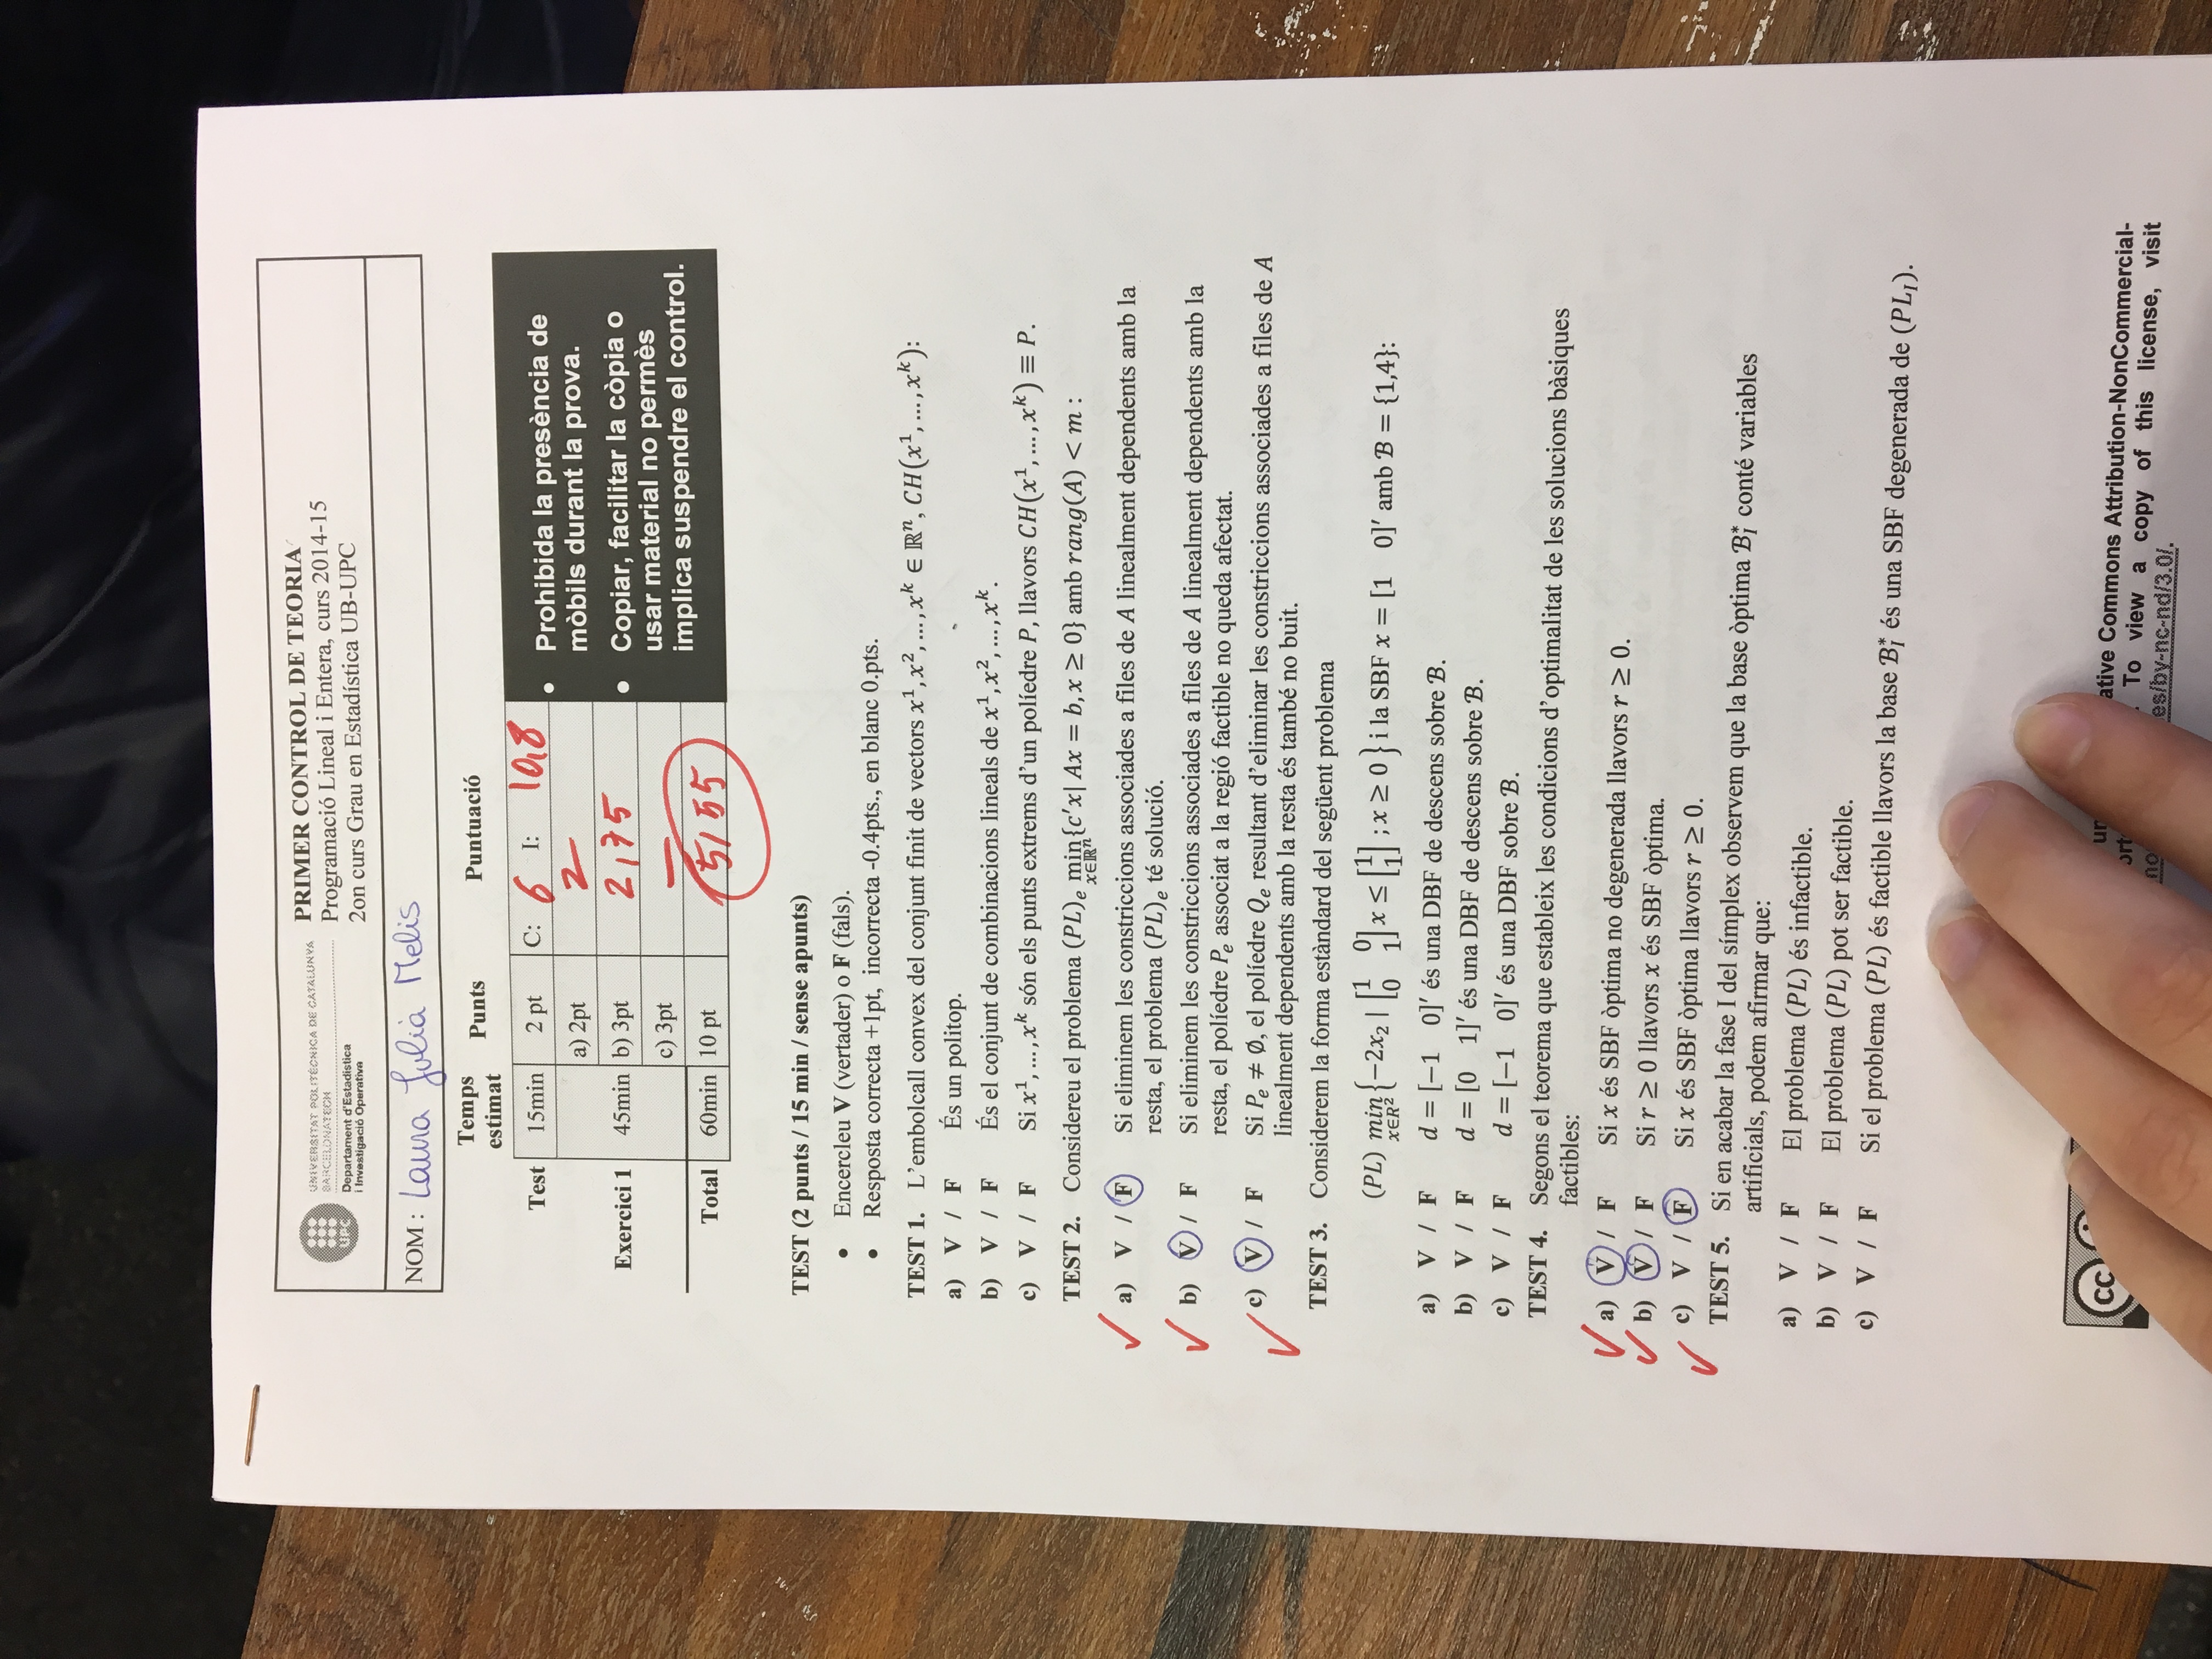 UNIVERSITAT POLITÈCNICA DE CATALUNYA
BARCELONATECH
UPC
Departament d'Estadística
i Investigació Operativa
PRIMER CONTROL DE TEORIA
Programació Lineal i Entera, curs 2014-15
2on curs Grau en Estadística UB-UPC
NOM : Laura Julià Melis
Temps estimat Punts Puntuació
Test 15min 2 pt C: 6 I: 10,8
a) 2pt 2
Exercici 1 45min b) 3pt 2,75
c) 3pt —
Total 60min 10 pt 5,55
• Prohibida la presència de
mòbils durant la prova.
• Copiar, facilitar la còpia o
usar material no permès
implica suspendre el control.
TEST (2 punts / 15 min / sense apunts)
• Encercleu V (vertader) o F (fals).
• Resposta correcta +1pt, incorrecta -0.4pts., en blanc 0.pts.
TEST 1. L'embolcall convex del conjunt finit de vectors x¹, x², ..., xᵏ ∈ ℝⁿ, CH(x¹, ..., xᵏ):
a) V / F És un politop.
b) V / F És el conjunt de combinacions lineals de x¹, x², ..., xᵏ.
c) V / F Si x¹, ..., xᵏ són els punts extrems d'un políedre P, llavors CH(x¹, ..., xᵏ) ≡ P.
TEST 2. Considereu el problema (PL)ₑ min x∈ℝⁿ {c'x| Ax = b, x ≥ 0} amb rang(A) < m :
a) V / F Si eliminem les constriccions associades a files de A linealment dependents amb la
resta, el problema (PL)ₑ té solució.
b) V / F Si eliminem les constriccions associades a files de A linealment dependents amb la
resta, el políedre Pₑ associat a la regió factible no queda afectat.
c) V / F Si Pₑ ≠ ∅, el políedre Qₑ resultant d'eliminar les constriccions associades a files de A
linealment dependents amb la resta és també no buit.
TEST 3. Considerem la forma estàndard del següent problema
(PL) min x∈R² {−2x₂ | [1 0; 0 1] x ≤ [1; 1] ; x ≥ 0 } i la SBF x = [1 0]' amb ℬ = {1,4}:
a) V / F d = [−1 0]' és una DBF de descens sobre ℬ.
b) V / F d = [0 1]' és una DBF de descens sobre ℬ.
c) V / F d = [−1 0]' és una DBF sobre ℬ.
TEST 4. Segons el teorema que estableix les condicions d'optimalitat de les solucions bàsiques
factibles:
a) V / F Si x és SBF òptima no degenerada llavors r ≥ 0.
b) V / F Si r ≥ 0 llavors x és SBF òptima.
c) V / F Si x és SBF òptima llavors r ≥ 0.
TEST 5. Si en acabar la fase I del símplex observem que la base òptima ℬ*ᵢ conté variables
artificials, podem afirmar que:
a) V / F El problema (PL) és infactible.
b) V / F El problema (PL) pot ser factible.
c) V / F Si el problema (PL) és factible llavors la base ℬ*ᵢ és una SBF degenerada de (PLᵢ).
cc
ative Commons Attribution-NonCommercial-
. To view a copy of this license, visit
es/by-nc-nd/3.0/.